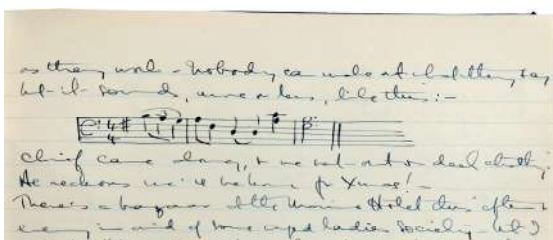 as they work - Nobody can make out what they say
but it sounds, more or less, like this :-
Chief came along, & we
He reckons we'll be home for Xmas! -
There's a bazaar at the Marine Hotel this aftern
evening in aid of some ladies society - but I